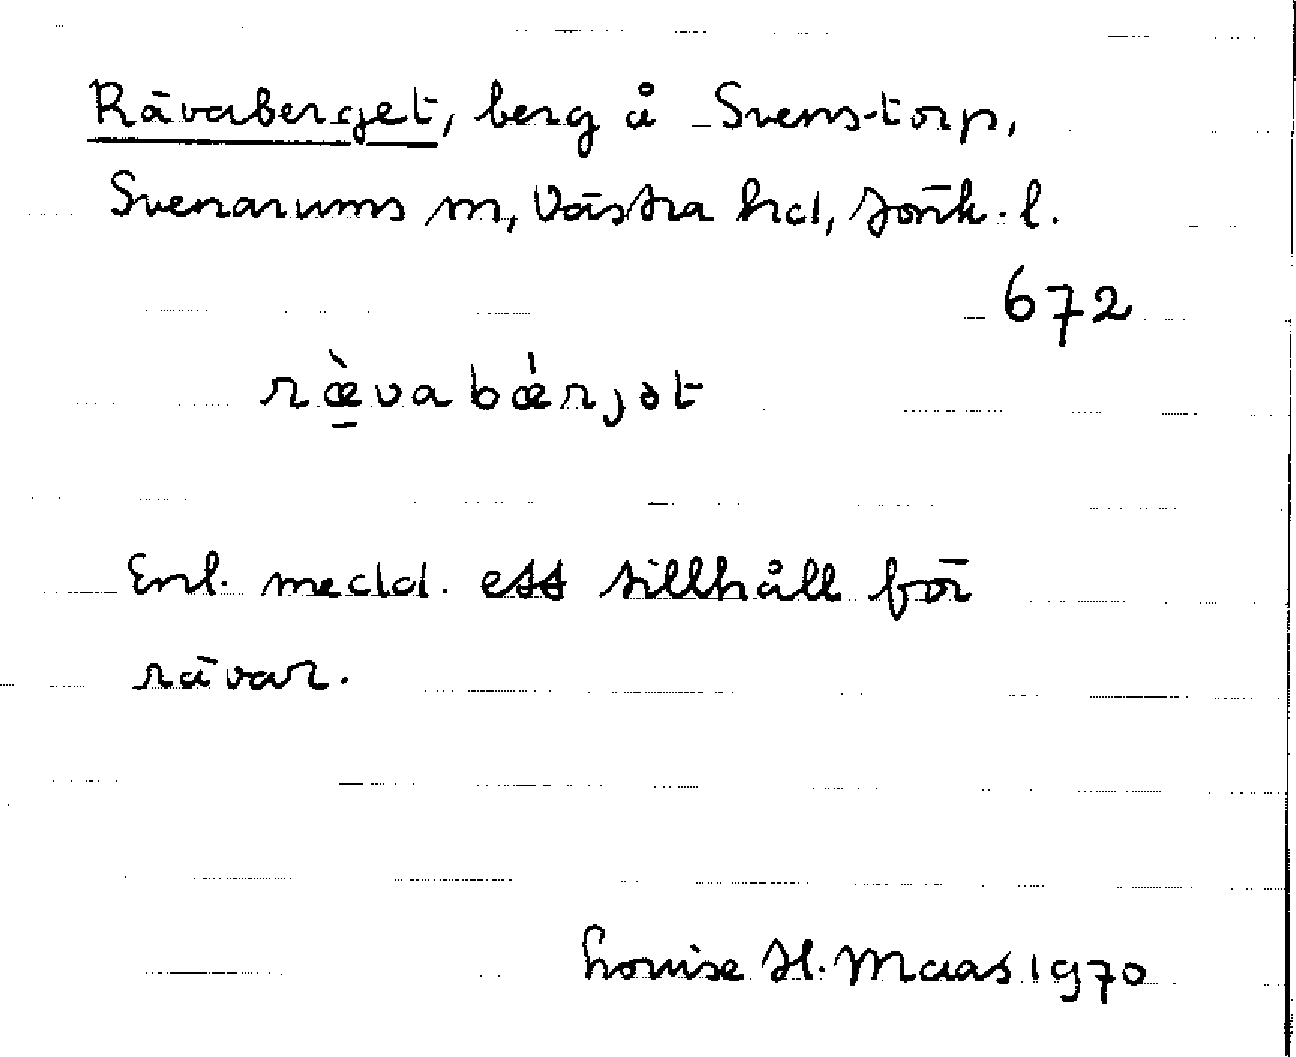 Rävaberget, berg å Svenstorp,
Svenarums sn, Västra hd, Jönk. l.
672
ræ̱̀vabǽrjət
Enl. medd. ett tillhåll för
rävar.
Louise H. Maas 1970